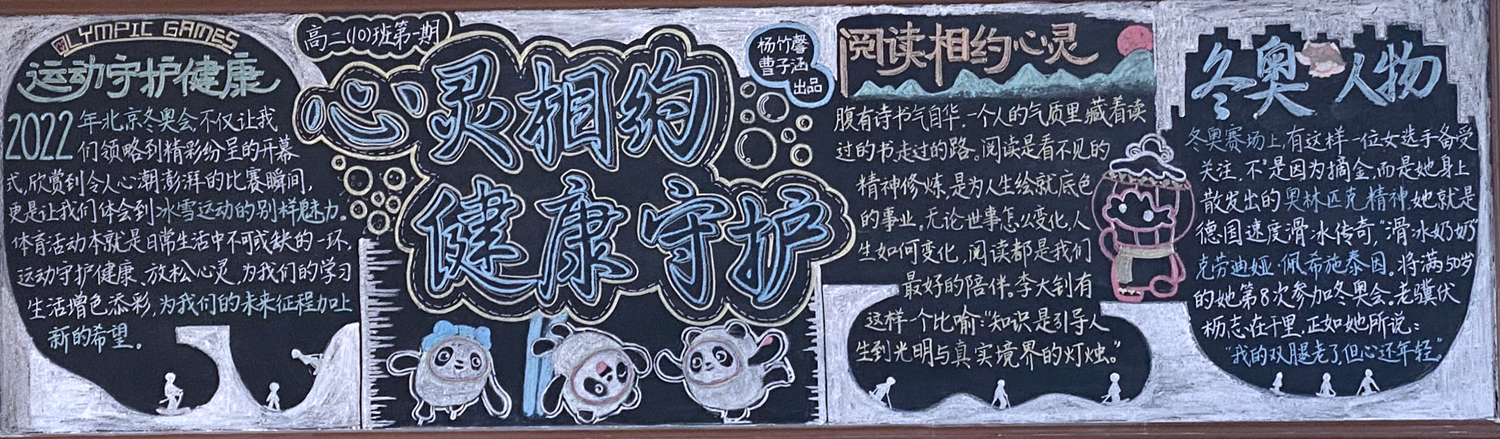 OLYMPIC GAMES
运动守护健康
2022年北京冬奥会不仅让我
们领略到精彩纷呈的开幕
式,欣赏到令人心潮澎湃的比赛瞬间,
更是让我们体会到冰雪运动的别样魅力。
体育活动本就是日常生活中不可或缺的一环.
运动守护健康、放松心灵,为我们的学习
生活增色添彩,为我们的未来征程加上
新的希望。
高二(10)班第一期
心灵相约
健康守护
杨竹馨
曹子涵
出品
阅读相约心灵
腹有诗书气自华.一个人的气质里,藏着读
过的书,走过的路。阅读是看不见的
精神修炼,是为人生绘就底色
的事业。无论世事怎么变化,人
生如何变化,阅读都是我们
最好的陪伴。李大钊有
这样一个比喻:“知识是引导人
生到光明与真实境界的灯烛。”
冬奥人物
冬奥赛场上,有这样一位女选手备受
关注,不是因为摘金,而是她身上
散发出的奥林匹克精神,她就是
德国速度滑冰传奇,“滑冰奶奶”
克劳迪娅·佩希施泰因。将满50岁
的她第8次参加冬奥会。老骥伏
枥志在千里,正如她所说:
“我的双腿老了,但心还年轻。”